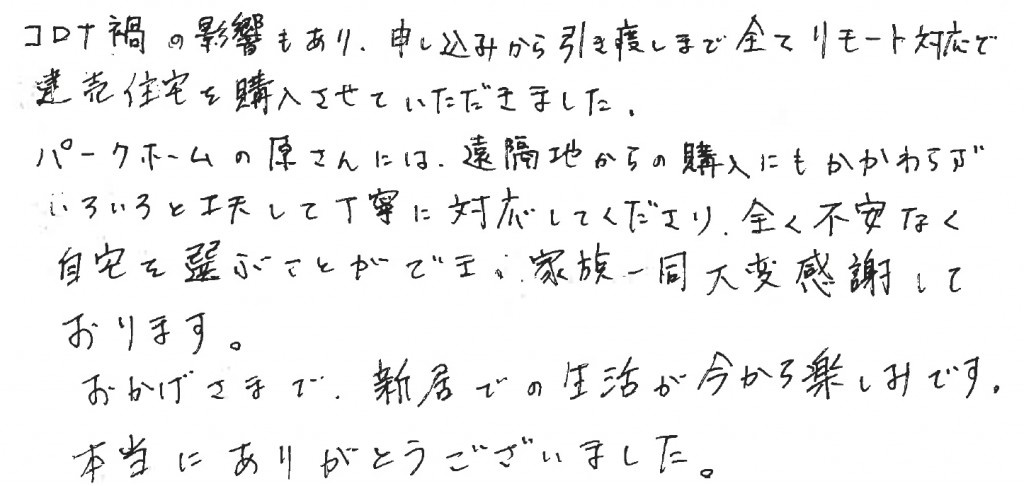 コロナ禍の影響もあり、申し込みから引き渡しまで全てリモート対応で
建売住宅を購入させていただきました。
パークホームの原さんには、遠隔地からの購入にもかかわらず
いろいろと工夫して丁寧に対応してくださり、全く不安なく
自宅を選ぶことができ、家族一同大変感謝して
おります。
おかげさまで、新居での生活が今から楽しみです。
本当にありがとうございました。